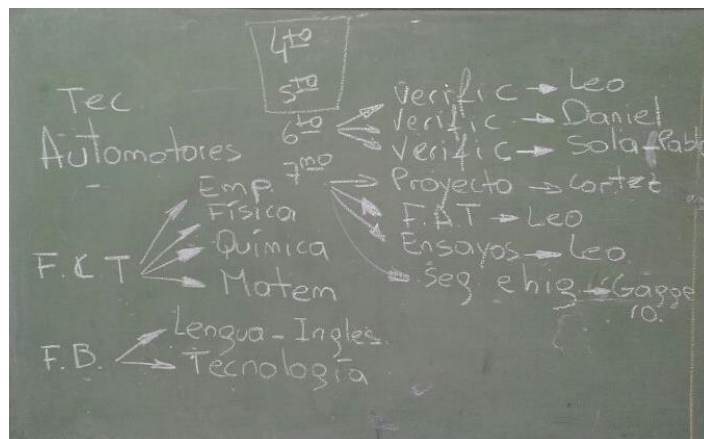 4to
5to
Tec
Automotores
6to
verific → Leo
verific → Daniel
verific → Sola-Pablo
7mo
Proyecto → Cortez
F.A.T → Leo
Ensayos → Leo.
Seg ehig → Gagge
ro.
F.C T
Emp.
Física
Química
Matem
F.B.
Lengua - Ingles.
Tecnología